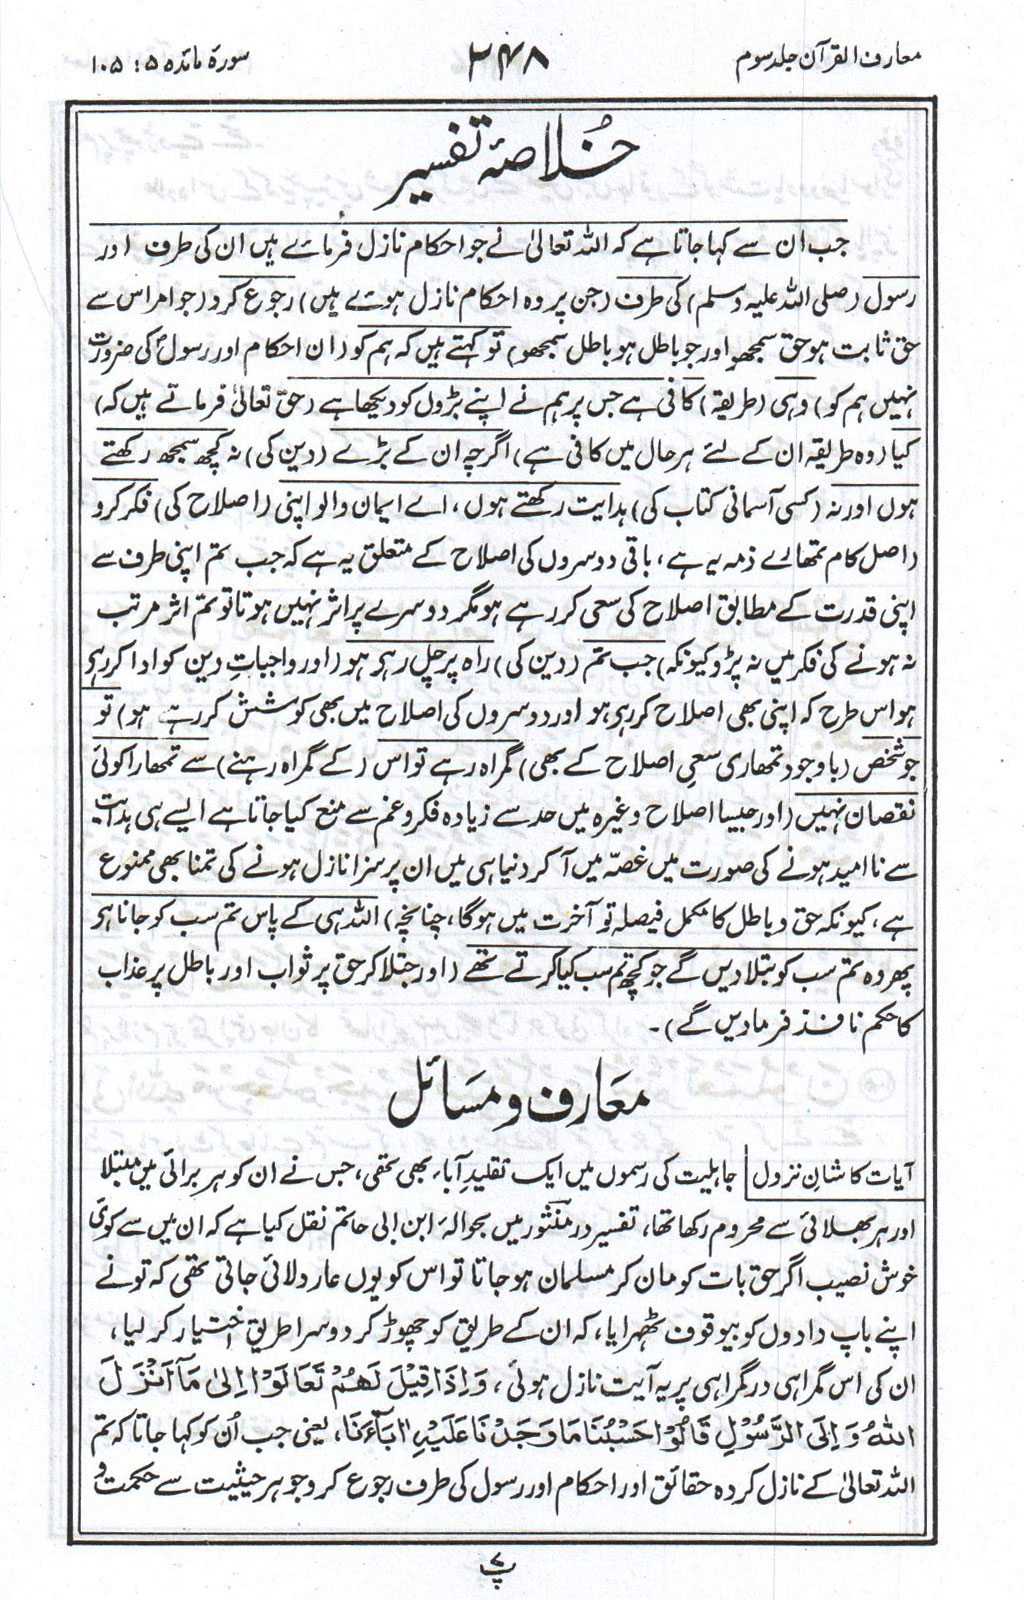 معارف القرآن جلد سوم
۲۴۸
سورۃ مائدہ ۵ : ۱۰۵
خلاصۂ تفسیر
جب ان سے کہا جاتا ہے کہ اللہ تعالیٰ نے جو احکام نازل فرمائے ہیں ان کی طرف اور
رسول (صلی اللہ علیہ وسلم) کی طرف (جن پر وہ احکام نازل ہوئے ہیں) رجوع کرو (جو امر اس سے
حق ثابت ہو حق سمجھو اور جو باطل ہو باطل سمجھو) تو کہتے ہیں کہ ہم کو (ان احکام اور رسولؐ کی ضرورت
نہیں ہم کو) وہی (طریقہ) کافی ہے جس پر ہم نے اپنے بڑوں کو دیکھا ہے (حق تعالیٰ فرماتے ہیں کہ)
کیا (وہ طریقہ ان کے لئے ہر حال میں کافی ہے) اگرچہ ان کے بڑے (دین کی) نہ کچھ سمجھ رکھتے
ہوں اور نہ (کسی آسمانی کتاب کی) ہدایت رکھتے ہوں، اے ایمان والو اپنی (اصلاح کی) فکر کرو
(اصل کام تمھارے ذمہ یہ ہے، باقی دوسروں کی اصلاح کے متعلق یہ ہے کہ جب تم اپنی طرف سے
اپنی قدرت کے مطابق اصلاح کی سعی کر رہے ہو مگر دوسرے پر اثر نہیں ہوتا تو تم اثر مرتب
نہ ہونے کی فکر میں نہ پڑو کیونکہ) جب تم (دین کی) راہ پر چل رہی ہو (اور واجباتِ دین کو ادا کر رہی
ہو اس طرح کہ اپنی بھی اصلاح کر رہی ہو اور دوسروں کی اصلاح میں بھی کوشش کر رہے ہو) تو
جو شخص (باوجود تمھاری سعیِ اصلاح کے بھی) گمراہ رہے تو اس (کے گمراہ رہنے) سے تمھارا کوئی
نقصان نہیں (اور جیسا اصلاح وغیرہ میں حد سے زیادہ فکر و غم سے منع کیا جاتا ہے ایسے ہی ہدایت
سے نا امید ہونے کی صورت میں غصہ میں آ کر دنیا ہی میں ان پر سزا نازل ہونے کی تمنا بھی ممنوع
ہے، کیونکہ حق و باطل کا مکمل فیصلہ تو آخرت میں ہوگا، چنانچہ) اللہ ہی کے پاس تم سب کو جانا ہی
پھر وہ تم سب کو بتلا دیں گے جو کچھ تم سب کیا کرتے تھے (اور جتلا کر حق پر ثواب اور باطل پر عذاب
کا حکم نافذ فرما دیں گے)۔
معارف و مسائل
آیات کا شانِ نزول جاہلیت کی رسموں میں ایک تقلیدِ آباء بھی تھی، جس نے ان کو ہر برائی میں مبتلا
اور ہر بھلائی سے محروم رکھا تھا، تفسیر در منثور میں بحوالۂ ابن ابی حاتم نقل کیا ہے کہ ان میں سے کوئی
خوش نصیب اگر حق بات کو مان کر مسلمان ہو جاتا تو اس کو یوں عار دلائی جاتی تھی کہ تو نے
اپنے باپ دادوں کو بیوقوف ٹھہرایا، کہ ان کے طریق کو چھوڑ کر دوسرا طریق اختیار کر لیا،
ان کی اس گمراہی در گمراہی پر یہ آیت نازل ہوئی، وَاِذَا قِيْلَ لَهُمْ تَعَالَوْا اِلٰى مَآ اَنْزَلَ
اللّٰهُ وَاِلَى الرَّسُوْلِ قَالُوْا حَسْبُنَا مَا وَجَدْنَا عَلَيْهِ اٰبَآءَنَا، یعنی جب اُن کو کہا جاتا کہ تم
اللہ تعالیٰ کے نازل کردہ حقائق اور احکام اور رسول کی طرف رجوع کرو جو ہر حیثیت سے حکمت و
پ ۷